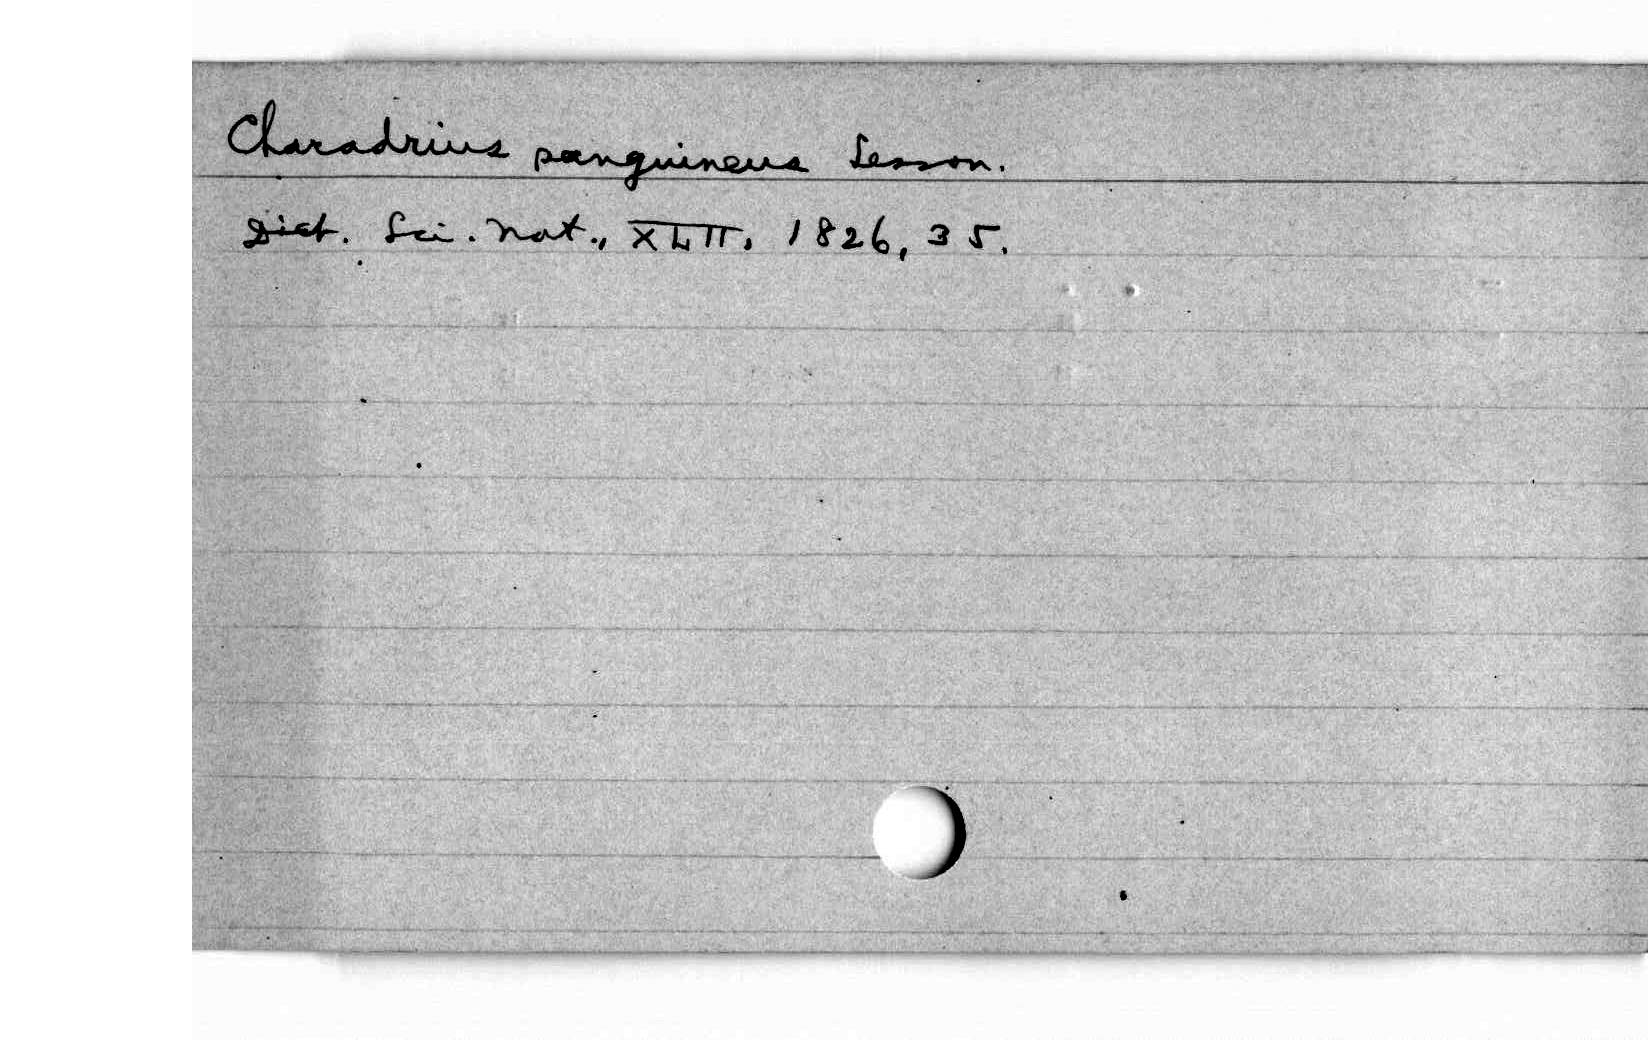 Charadrius sanguineus Lesson.
Dict. Sci. Nat., XLII, 1826, 35.